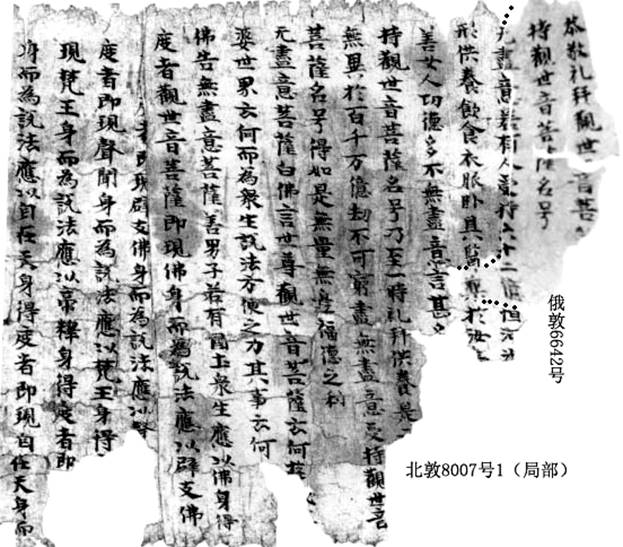 恭敬礼拜觀世音菩
持觀世音菩薩名号
无盡意若有人受持六十二億恒河沙
形供養飲食衣服卧具醫藥於汝
善女人功德多不無盡意言甚
持觀世音菩薩名号乃至一時礼拜供養是
無異於百千万億劫不可窮盡無盡意受持觀世音
菩薩名号得如是無量無邊福德之利
无盡意菩薩白佛言世尊觀世音菩薩云何遊
娑世界云何而為衆生說法方便之力其事云何
佛告無盡意菩薩善男子若有國土衆生應以佛身得
度者觀世音菩薩即現佛身而為說法應以辟支佛
者即現辟支佛身而為說法應以聲
度者即現聲聞身而為說法應以梵王身得
現梵王身而為說法應以帝釋身得度者即
身而為說法應以自在天身得度者即現自在天身而
俄敦6642号
北敦8007号1（局部）